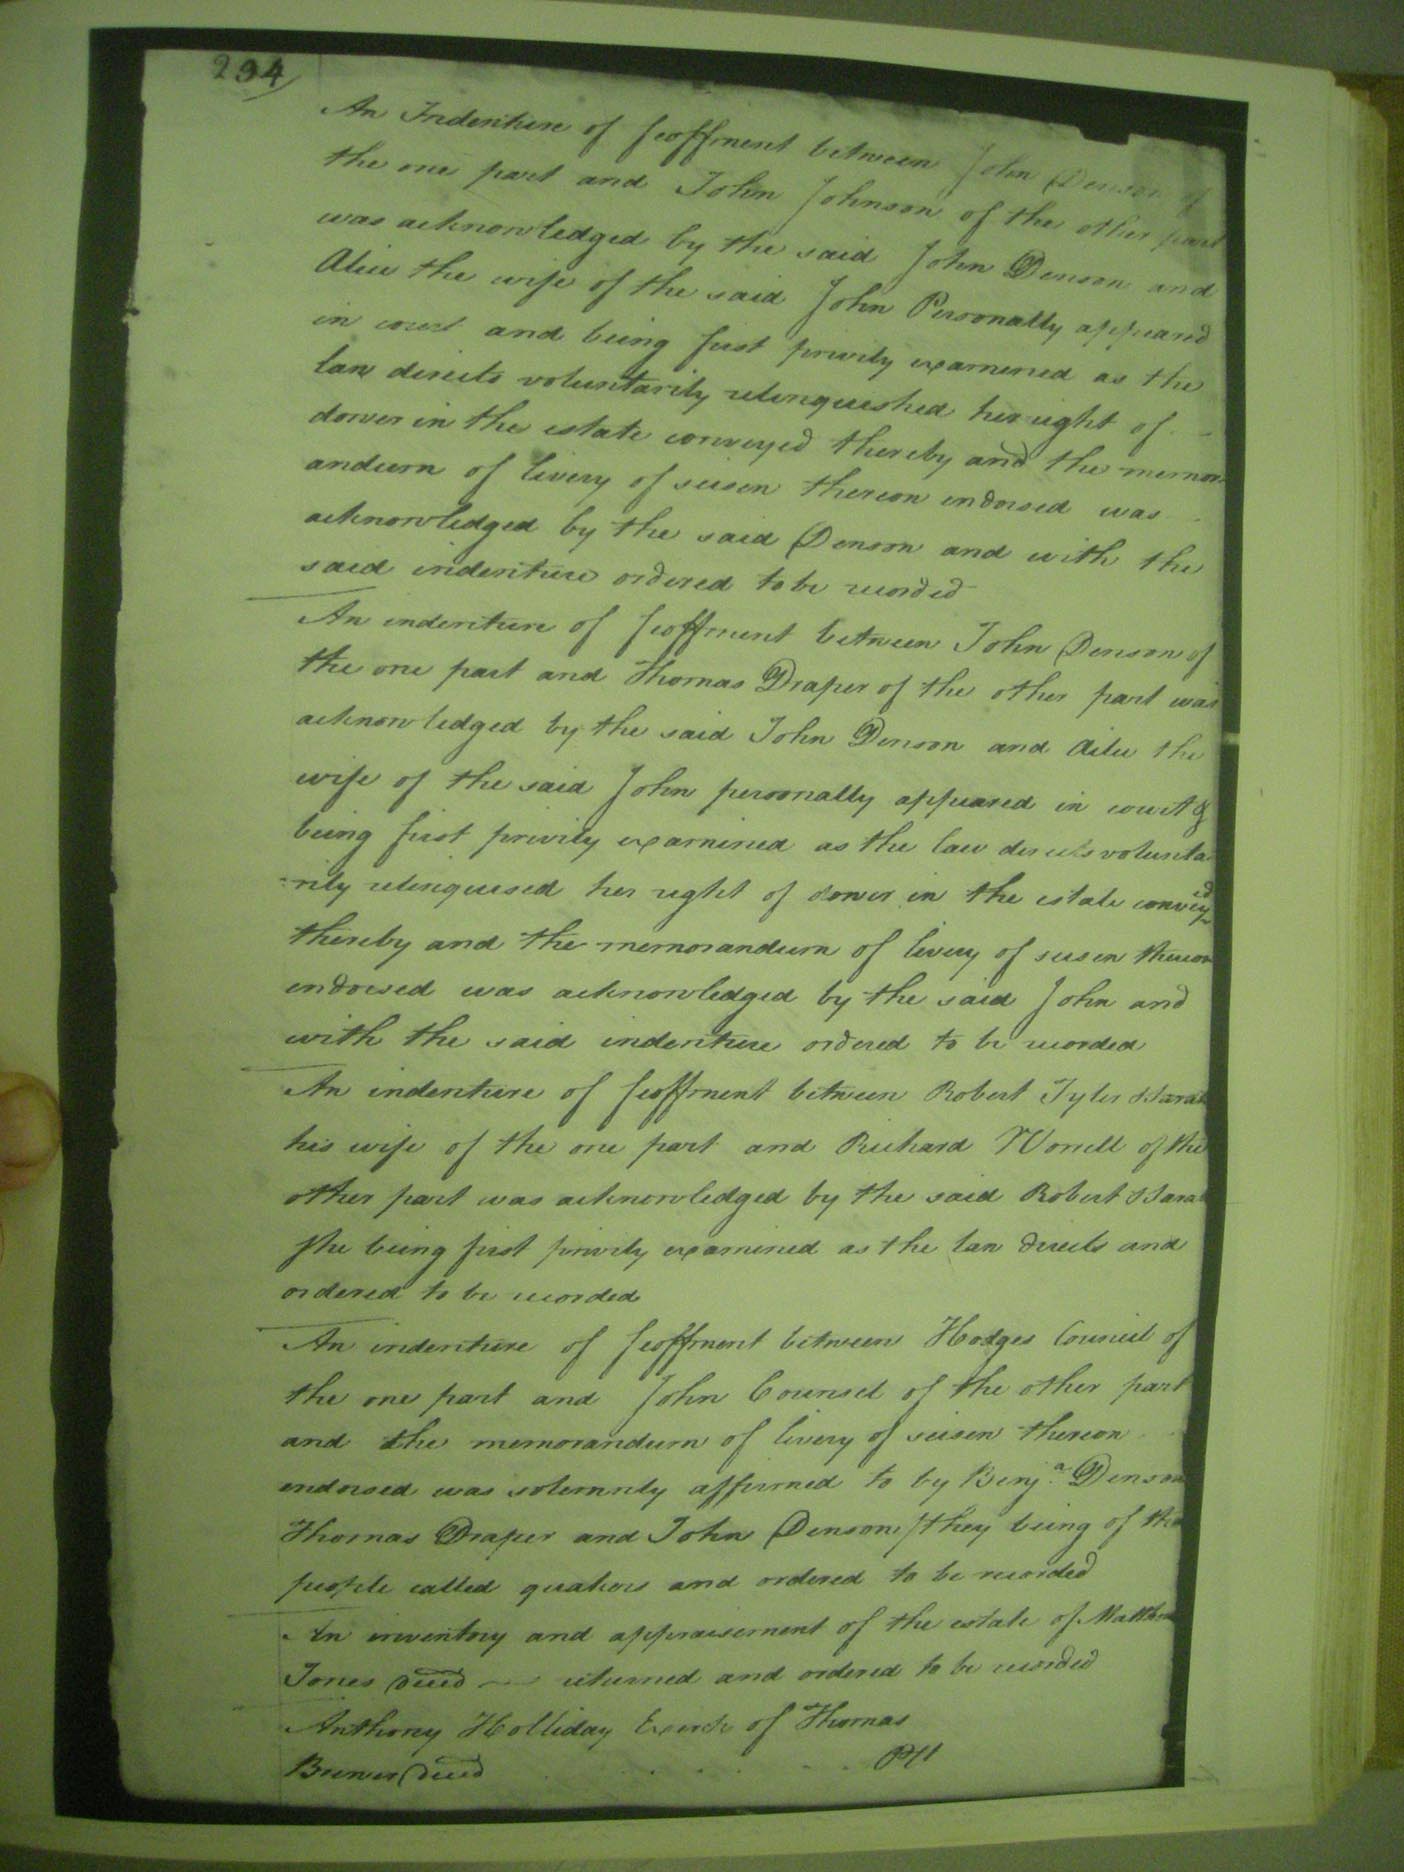 294
An Indenture of feoffment between John Denson of
the one part and John Johnson of the other part
was acknowledged by the said John Denson and
Alice the wife of the said John Personally appeared
in court and being first privily examened as the
law directs voluntarily relinquished her right of
dower in the estate conveyed thereby and the memor
andum of livery of seisen thereon endorsed was
acknowledged by the said Denson and with the
said indenture ordered to be recorded
An indenture of feoffment between John Denson of
the one part and Thomas Draper of the other part was
acknowledged by the said John Denson and the
wife of the said John personally appeared in court &
being first privily examined as the law directs volunta
-rily relinquised her right of dower in the estate conveyed
thereby and the memorandum of livery of seisen thereon
endorsed was acknowledged by the said John and
with the said indenture ordered to be recorded
An indenture of feoffment between Robert Tyler & Sarah
his wife of the one part and Richard Worrell of the
other part was acknowledged by the said Robert & Sarah
she being first privily examined as the law directs and
ordered to be recorded
An indenture of feoffment between Hodges Council of
the one part and John Counsel of the other part
and the memorandum of livery of seisen thereon
endorsed was solemnly affirmed to by Benja. Denson
Thomas Draper and John Denson / they being of the
people called quakers and ordered to be recorded
An inventory and appraisement of the estate of Matthew
Jones decd — returned and ordered to be recorded
Anthony Holliday of Thomas
Brewer decd . . . . . . Plt